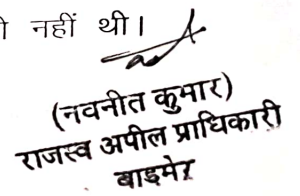 नहीं थी।
(नवनीत कुमार)
राजस्व अपील प्राधिकारी
बाड़मेर